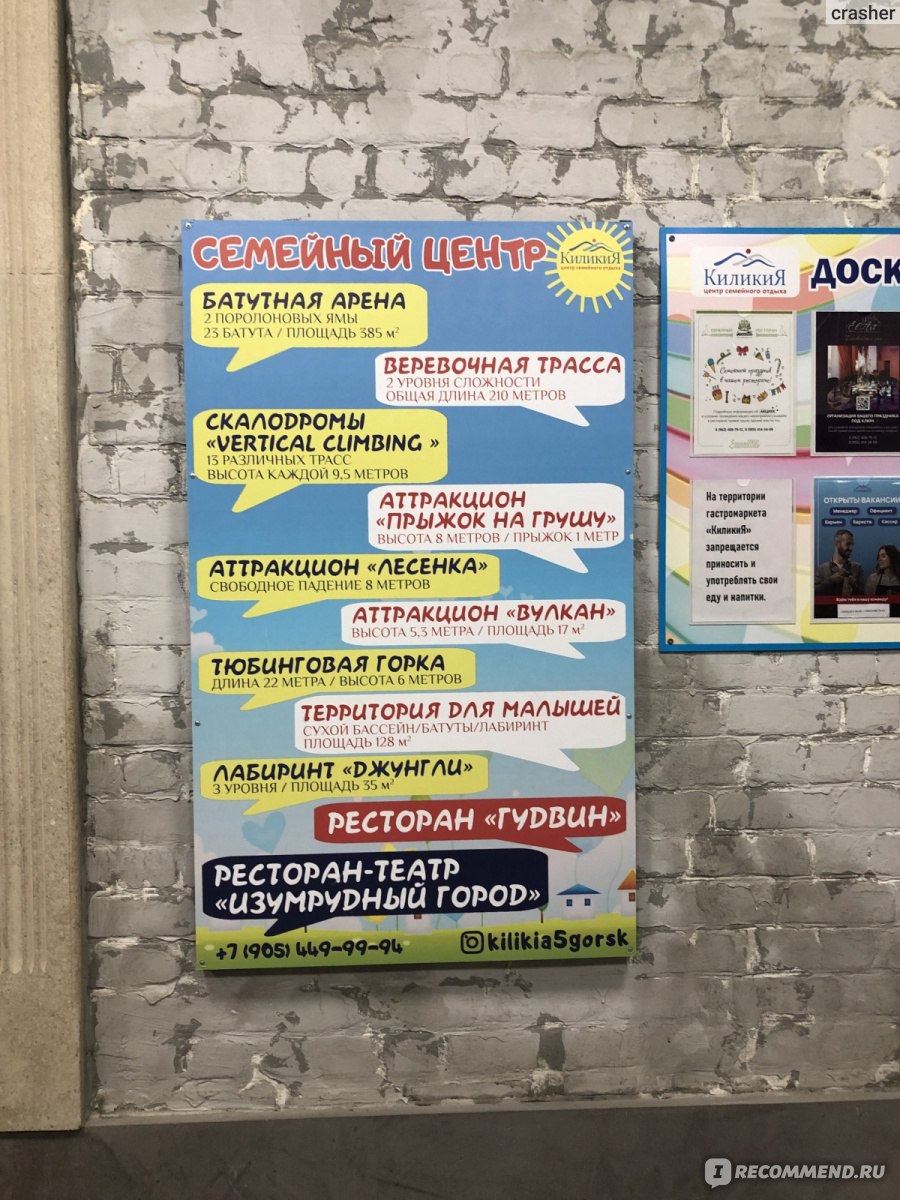 crasher
СЕМЕЙНЫЙ ЦЕНТР
КиликиЯ
центр семейного отдыха
БАТУТНАЯ АРЕНА
2 ПОРОЛОНОВЫХ ЯМЫ
23 БАТУТА / ПЛОЩАДЬ 385 м²
ВЕРЕВОЧНАЯ ТРАССА
2 УРОВНЯ СЛОЖНОСТИ
ОБЩАЯ ДЛИНА 210 МЕТРОВ
СКАЛОДРОМЫ
«VERTICAL CLIMBING »
13 РАЗЛИЧНЫХ ТРАСС
ВЫСОТА КАЖДОЙ 9,5 МЕТРОВ
АТТРАКЦИОН
«ПРЫЖОК НА ГРУШУ»
ВЫСОТА 8 МЕТРОВ / ПРЫЖОК 1 МЕТР
АТТРАКЦИОН «ЛЕСЕНКА»
СВОБОДНОЕ ПАДЕНИЕ 8 МЕТРОВ
АТТРАКЦИОН «ВУЛКАН»
ВЫСОТА 5,3 МЕТРА / ПЛОЩАДЬ 17 м²
ТЮБИНГОВАЯ ГОРКА
ДЛИНА 22 МЕТРА / ВЫСОТА 6 МЕТРОВ
ТЕРРИТОРИЯ ДЛЯ МАЛЫШЕЙ
СУХОЙ БАССЕЙН/БАТУТЫ/ЛАБИРИНТ
ПЛОЩАДЬ 128 м²
ЛАБИРИНТ «ДЖУНГЛИ»
3 УРОВНЯ / ПЛОЩАДЬ 35 м²
РЕСТОРАН «ГУДВИН»
РЕСТОРАН-ТЕАТР
«ИЗУМРУДНЫЙ ГОРОД»
+7 (905) 449-99-94
kilikia5gorsk
КиликиЯ
центр семейного отдыха
ДОСК
СЕМЕЙНЫЙ РЕСТОРАН
Семейные праздники
в нашем ресторане!
ОРГАНИЗАЦИЯ ВАШЕГО ПРАЗДНИКА
ПОД КЛЮЧ
На территории
гастромаркета
«КиликиЯ»
запрещается
приносить и
употреблять свои
еду и напитки.
ОТКРЫТЫ ВАКАНСИИ
Менеджер
Официант
Бармен
Бариста
Кассир
IRECOMMEND.RU